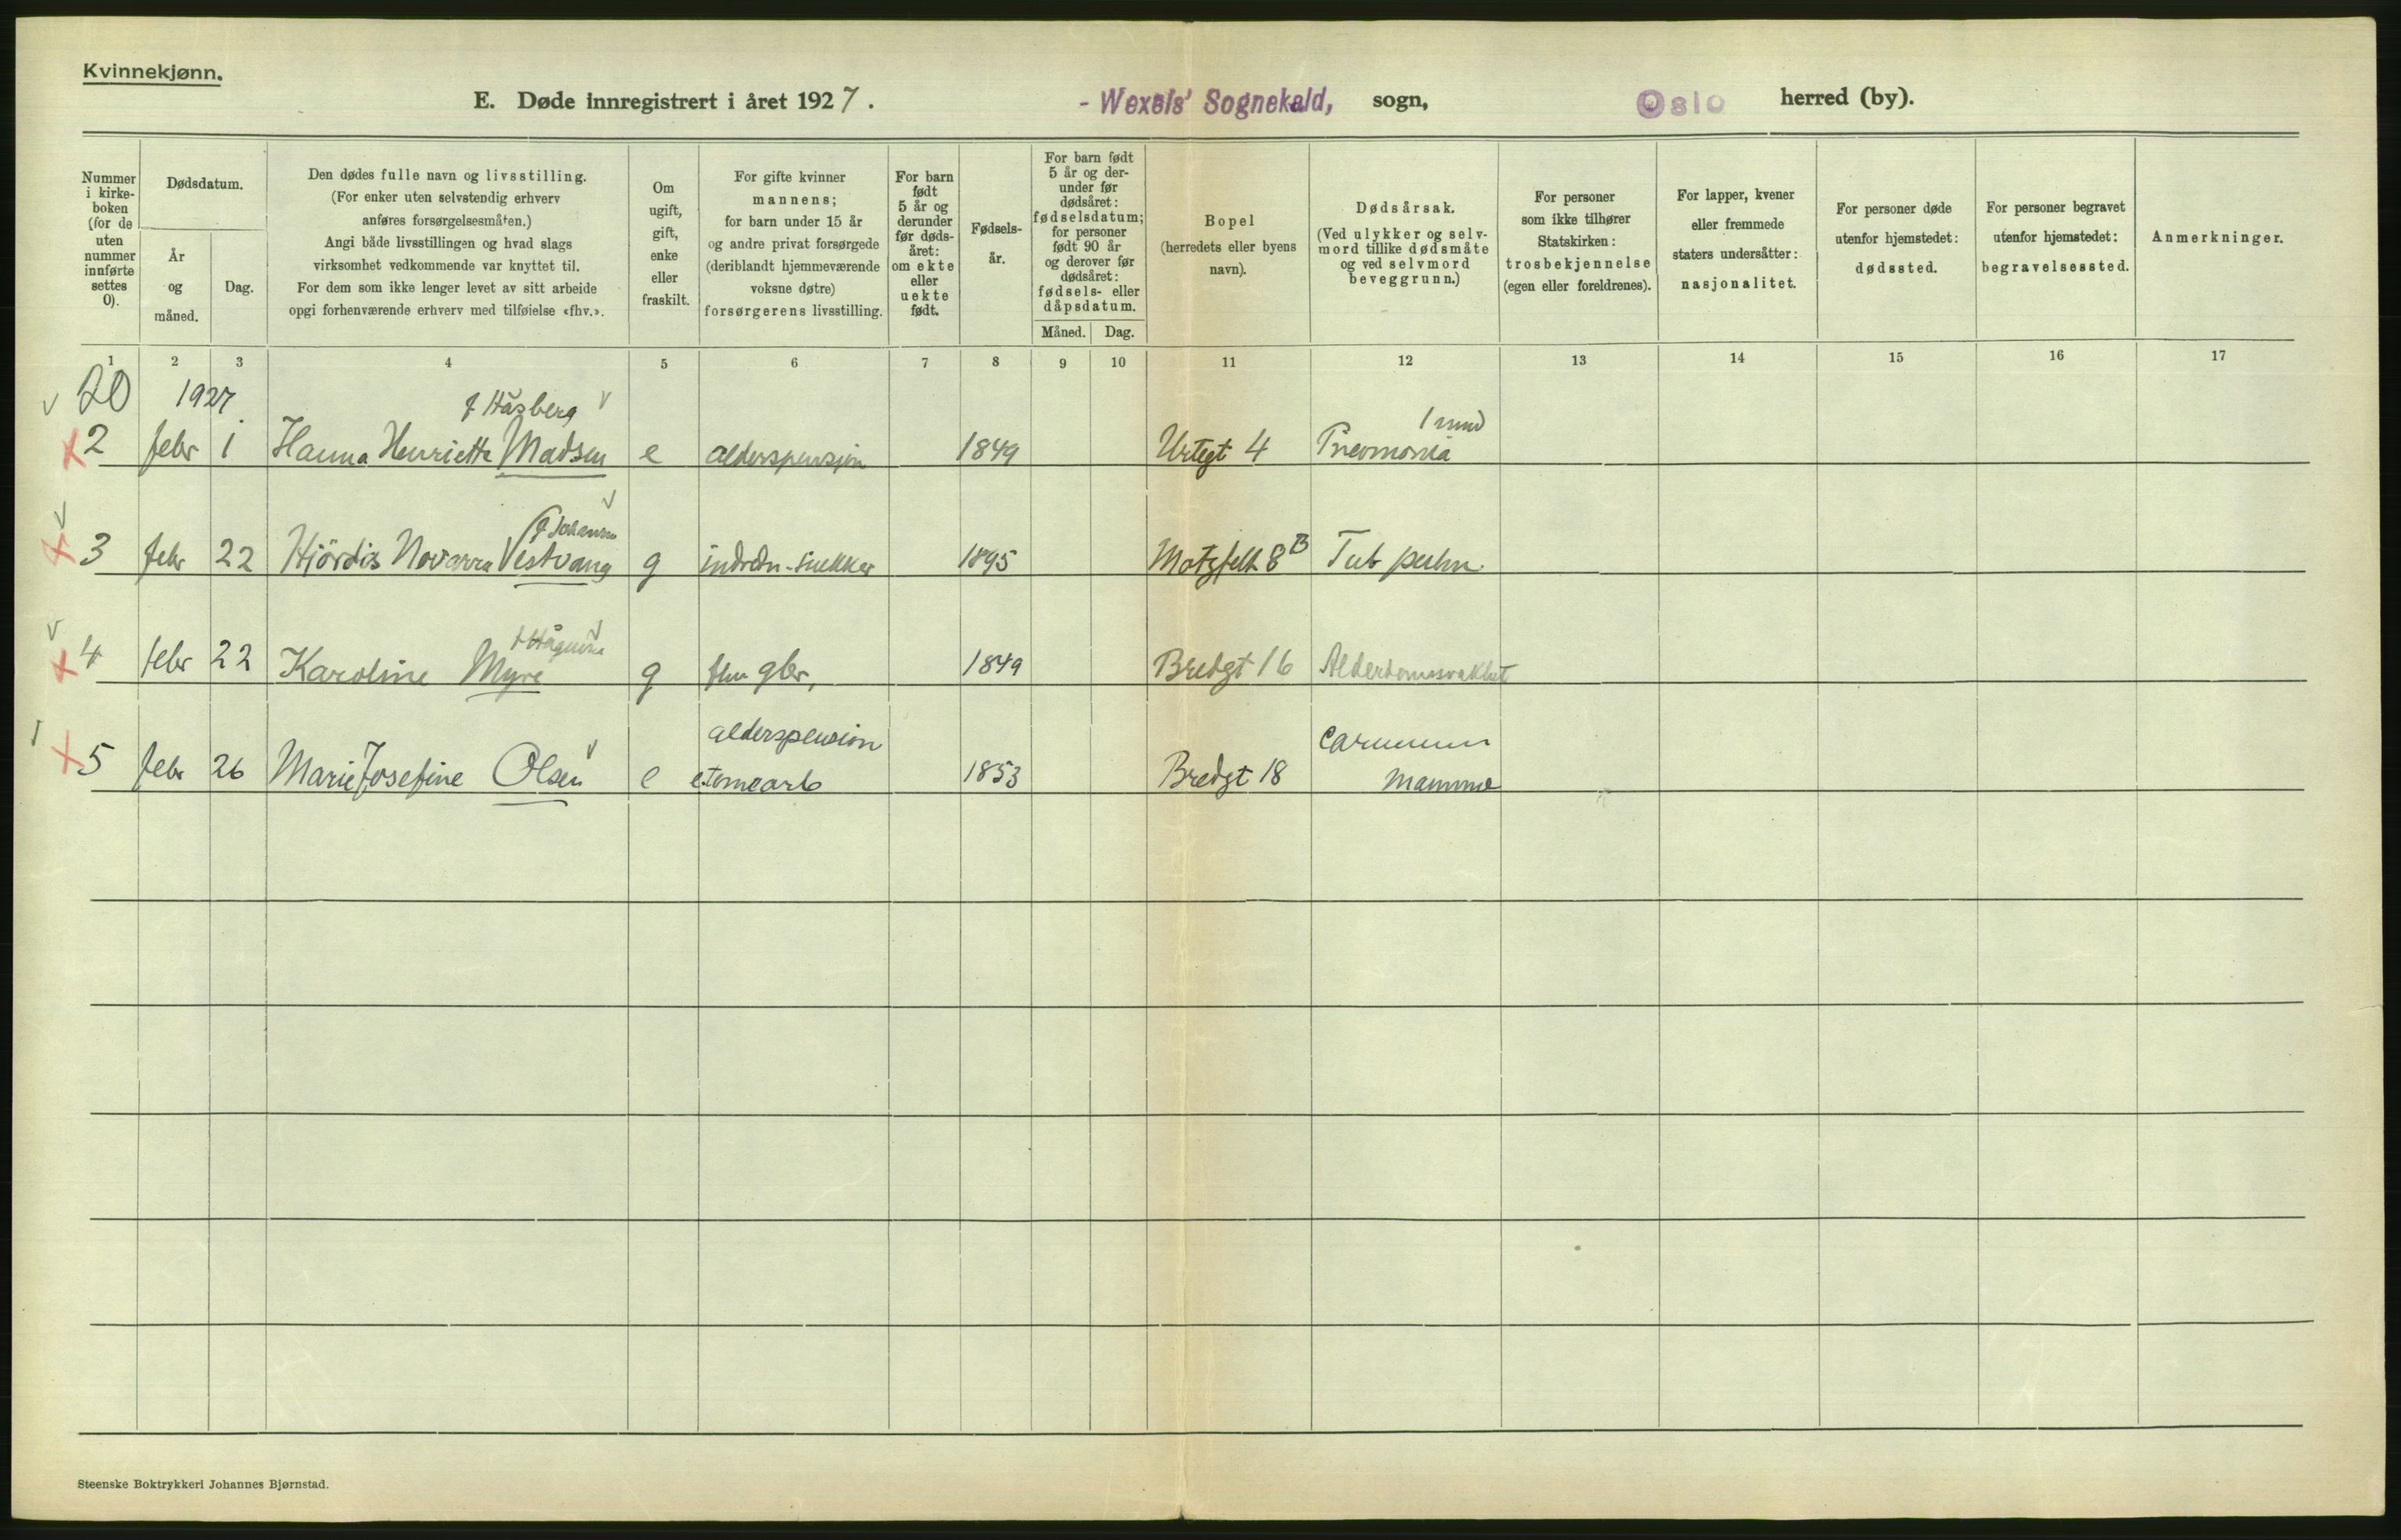 Kvinnekjønn.
E. Døde innregistrert i året 1927. - Wexels' Sognekald, sogn, Oslo herred (by).
Nummer i kirke-boken (for de uten nummer innførte settes 0).
Dødsdatum.
År og måned.
Dag.
Den dødes fulle navn og livsstilling.
(For enker uten selvstendig erhverv
anføres forsørgelsesmåten.)
Angi både livsstillingen og hvad slags
virksomhet vedkommende var knyttet til.
For dem som ikke lenger levet av sitt arbeide
opgi forhenværende erhverv med tilføielse «fhv.».
Om ugift, gift, enke eller fraskilt.
For gifte kvinner
mannens;
for barn under 15 år
og andre privat forsørgede
(deriblandt hjemmeværende
voksne døtre)
forsørgerens livsstilling.
For barn født 5 år og derunder før døds-året: om ekte eller uekte født.
Fødsels-år.
For barn født 5 år og der-under før dødsåret: fødselsdatum; for personer født 90 år og derover før dødsåret: fødsels- eller dåpsdatum.
Måned. Dag.
Bopel
(herredets eller byens
navn).
Dødsårsak.
(Ved ulykker og selv-
mord tillike dødsmåte
og ved selvmord
beveggrunn.)
For personer
som ikke tilhører
Statskirken:
trosbekjennelse
(egen eller foreldrenes).
For lapper, kvener
eller fremmede
staters undersåtter:
nasjonalitet.
For personer døde
utenfor hjemstedet:
dødssted.
For personer begravet
utenfor hjemstedet:
begravelsessted.
Anmerkninger.
1 2 3 4 5 6 7 8 9 10 11 12 13 14 15 16 17
20 1927 f Håsberg
2 febr 1 Hanna Henriette Madsen e alderspensjon 1849 Urtegt 4 Pneumonia
f Johansen
3 febr 22 Hjördis Novarra Vestvang g indredn-snekker 1895 Motzfelt 8 B Tub pulm.
4 febr 22 Karoline Myre g fhv gbr, 1849 Bredgt 16 Alderdomssvakhet
alderspension
5 febr 26 Marie Josefine Olsen e 1853 Bredgt 18 mamma
Steenske Boktrykkeri Johannes Bjørnstad.